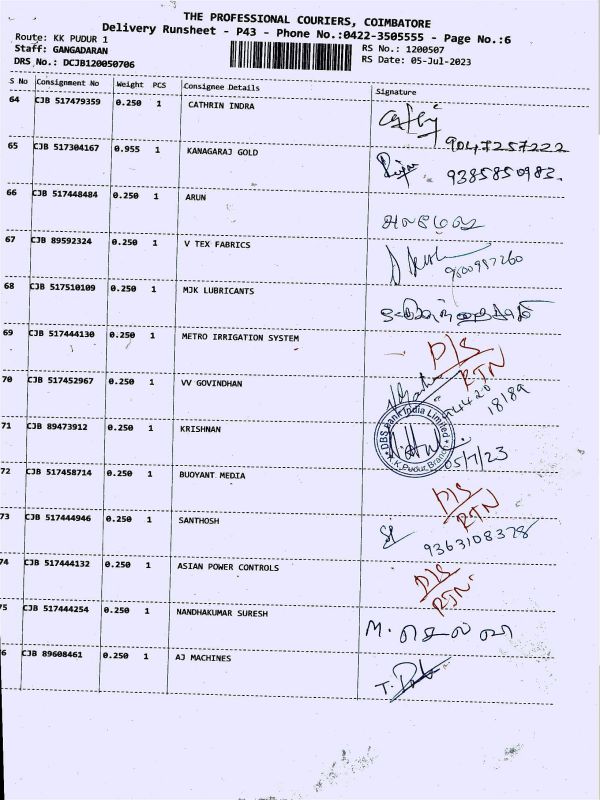 THE PROFESSIONAL COURIERS, COIMBATORE
Delivery Runsheet - P43 - Phone No.:0422-3505555 - Page No.:6
Route: KK PUDUR 1 RS No.: 1200507
Staff: GANGADARAN RS Date: 05-Jul-2023
DRS No.: DCJB120050706
S No Consignment No Weight PCS Consignee Details Signature
64 CJB 517479359 0.250 1 CATHRIN INDRA
9047257222
65 CJB 517304167 0.955 1 KANAGARAJ GOLD
9385850983.
66 CJB 517448484 0.250 1 ARUN
67 CJB 89592324 0.250 1 V TEX FABRICS
68 CJB 517510109 0.250 1 MJK LUBRICANTS
69 CJB 517444130 0.250 1 METRO IRRIGATION SYSTEM D/S
RTN
70 CJB 517452967 0.250 1 VV GOVINDHAN
94420
18189
71 CJB 89473912 0.250 1 KRISHNAN
DBS Bank India Limited
K.K.Pudur Branch
05/7/23
72 CJB 517458714 0.250 1 BUOYANT MEDIA D/S
RTN
73 CJB 517444946 0.250 1 SANTHOSH
9363108378
74 CJB 517444132 0.250 1 ASIAN POWER CONTROLS D/S
RTN.
75 CJB 517444254 0.250 1 NANDHAKUMAR SURESH
6 CJB 89608461 0.250 1 AJ MACHINES